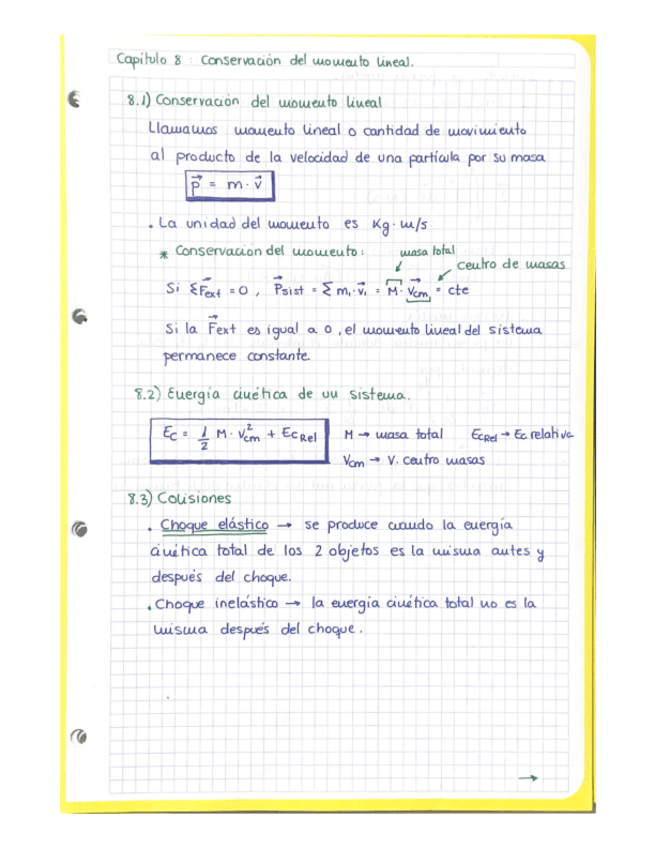 Capítulo 8 : Conservación del momento lineal.
8.1) Conservación del momento lineal
Llamamos momento lineal o cantidad de movimiento
al producto de la velocidad de una partícula por su masa
p⃗ = m · v⃗
. La unidad del momento es Kg · m/s
* Conservacion del momento: masa total
centro de masas
Si ΣF⃗ext = 0 , P⃗sist = Σ mᵢ · v⃗ᵢ = M · v⃗cm = cte
Si la F⃗ext es igual a 0, el momento lineal del sistema
permanece constante.
8.2) Energía cinética de un sistema.
Ec = 1/2 M · V²cm + EcRel M → masa total EcRel → Ec relativa
Vcm → V. centro masas
8.3) Colisiones
. Choque elástico → se produce cuando la energía
cinética total de los 2 objetos es la misma antes y
después del choque.
. Choque inelástico → la energía cinética total no es la
misma después del choque.
→